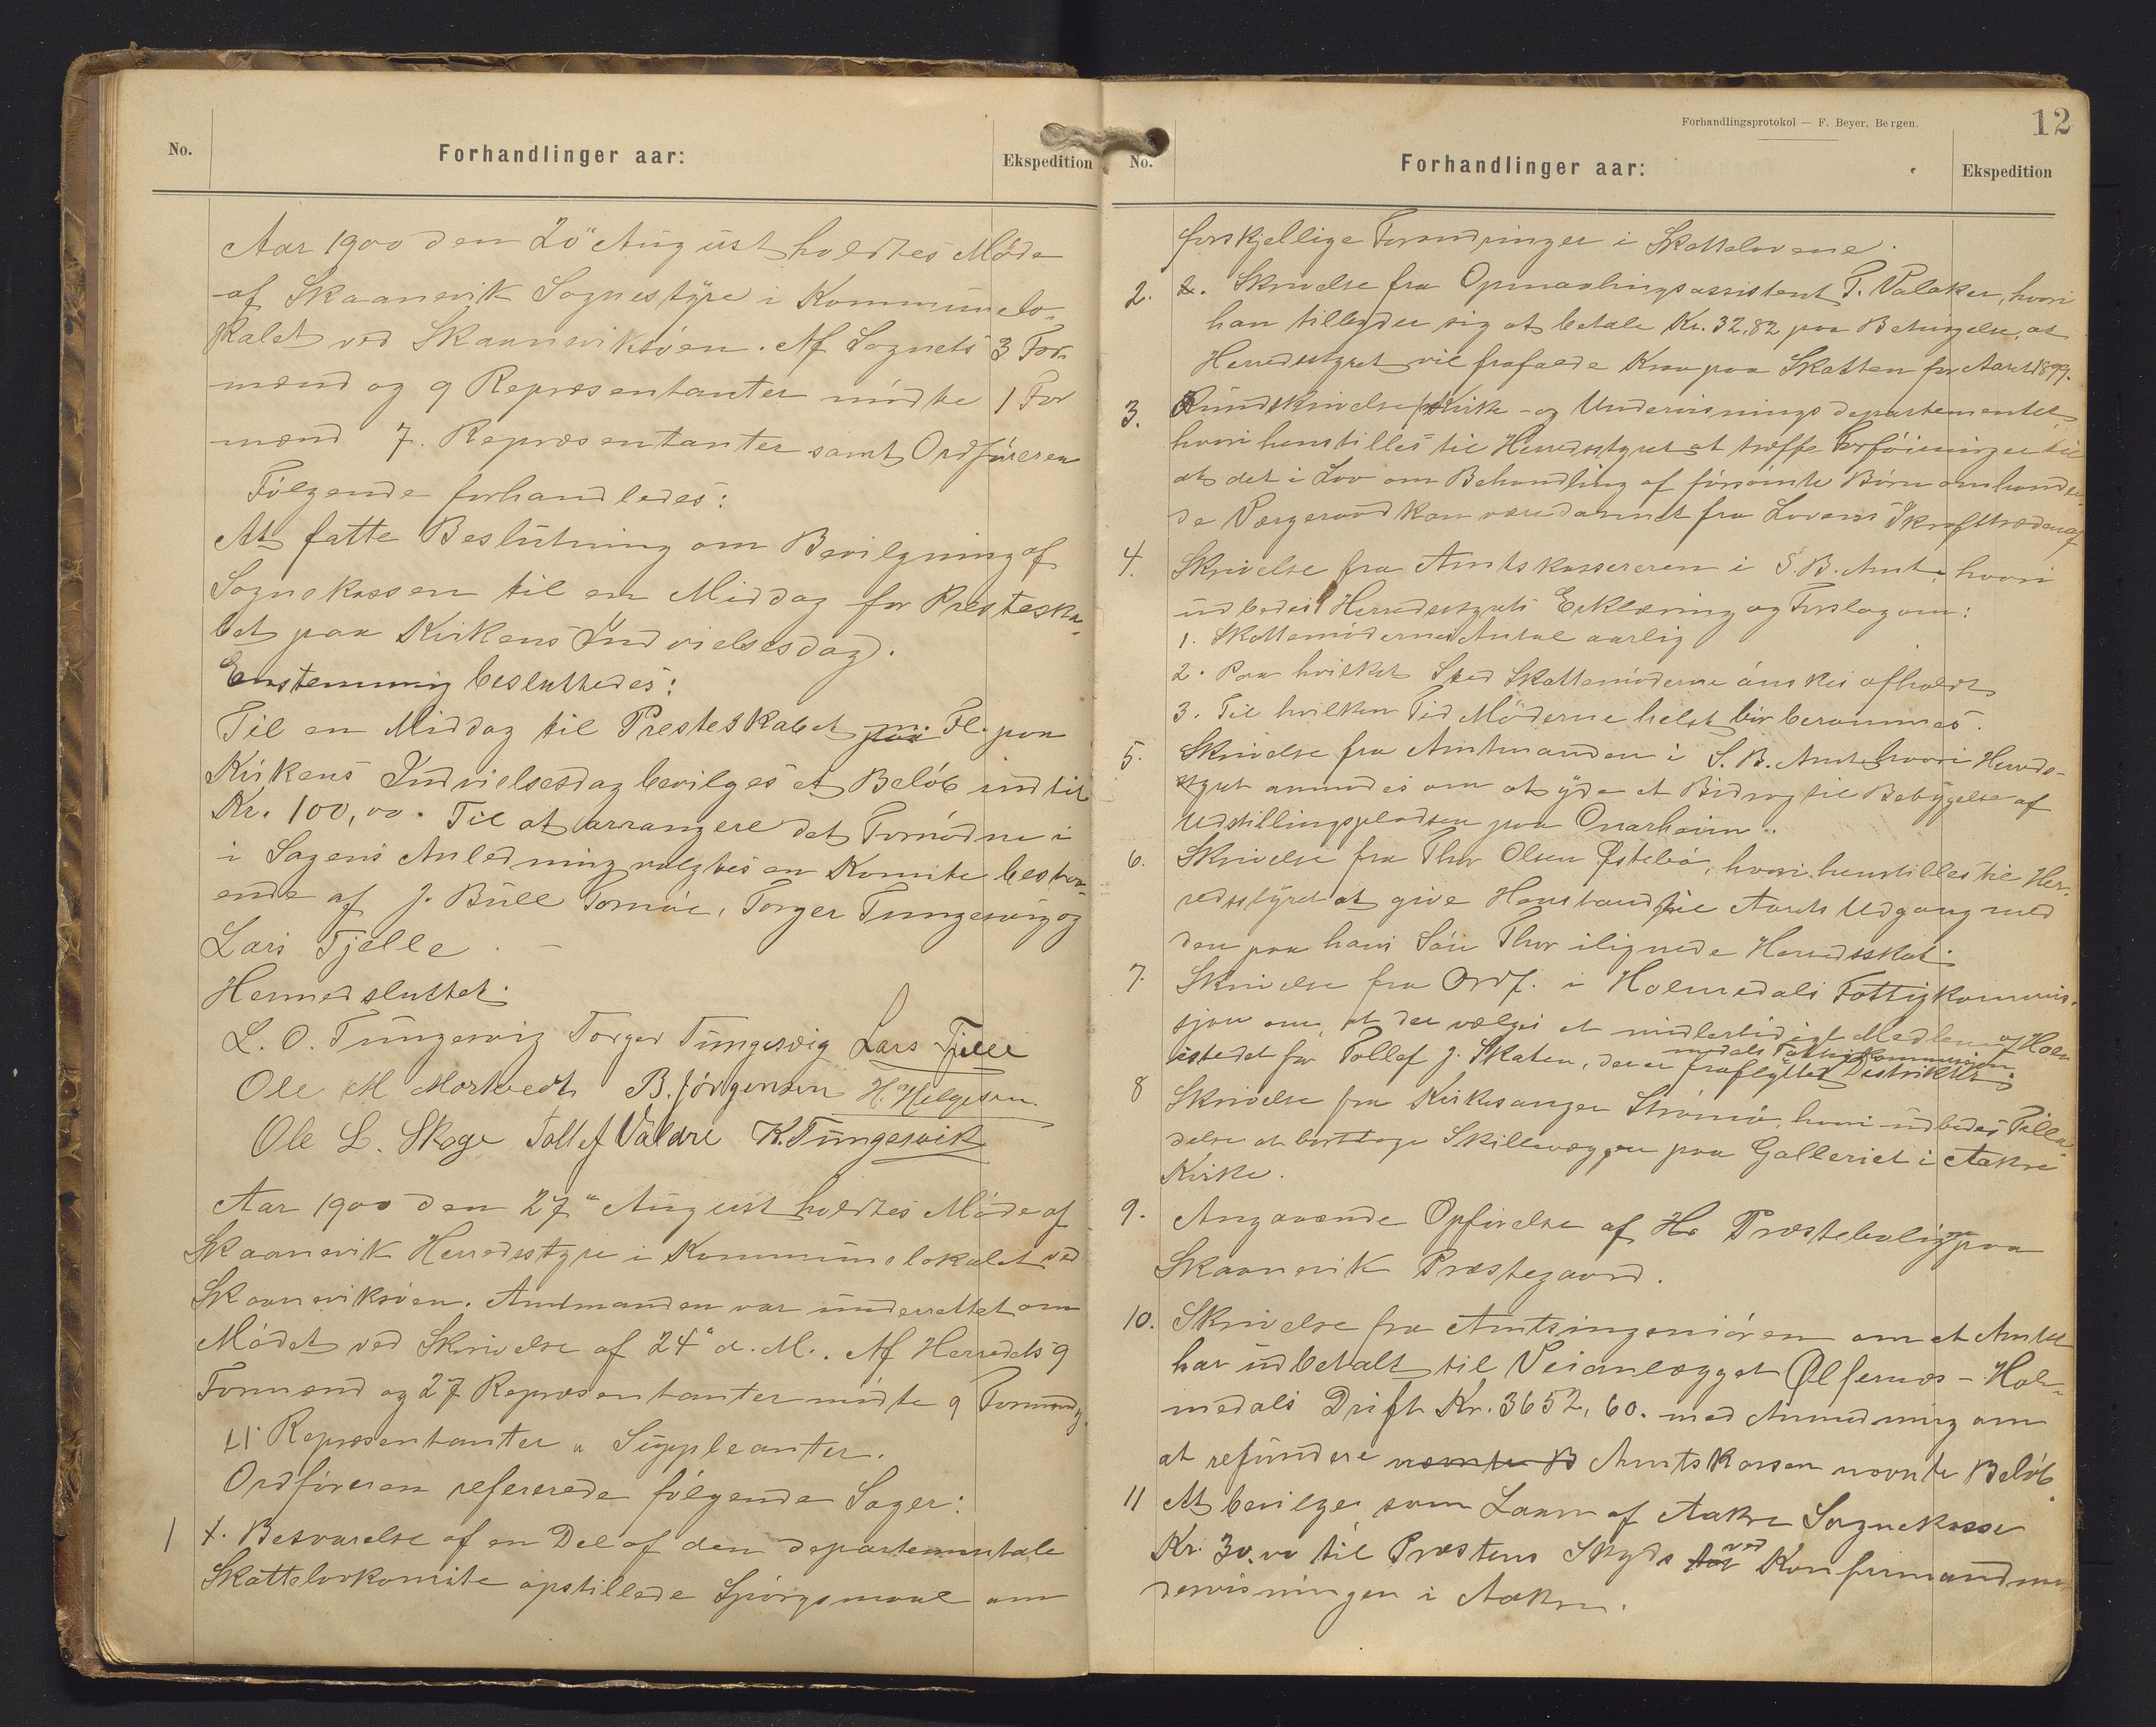 No.
Forhandlinger aar:
Ekspedition
Aar 1900 den 20" August holdtes Møde
af Skaanevik Sognestyre i Kommunelo-
kalet ved Skaaneviksøen. Af Sognets 3 For-
mænd og 9 Repræsentanter mødte 1 For
mænd 7. Repræsentanter samt Ordføreren
Følgende forhandledes:
At fatte Beslutning om Bevilgning af
Sognekassen til en Middag for Presteska-
bet paa Kirkens Indvielsesdag.
Enstemmig besluttedes:
Til en Middag til Presteskabet m. Fl. paa
Kirkens Indvielsesdag bevilges et Beløb indtil
Kr. 100,00. Til at arrangere det Fornødne i
i Sagens Anledning valgtes en Komite bestaa-
ende af J. Bull Tornøe, Torger Tungesvig og
Lars Fjelle. —
Hermed sluttet.
L. O. Tungesvig Torger Tungesvig Lars Fjelle
Ole M Mortvedt B. Jørgensen H. Helgesen
Ole L. Skoge Tollef Valdre K. Tungesvik
Aar 1900 den 27" August holdtes Møde af
Skaanevik Herredsstyre i Kommunelokalet ved
Skaaneviksøen. Amtmanden var underrettet om
Mødet ved Skrivelse af 24" d. M.. Af Herredets 9
Formænd og 27 Repræsentanter mødte 9 Formænd og
Repræsentanter " Suppleanter.
Ordføreren refererede følgende Sager:
1 1. Besvarelse af en Del af den departementale
Skattelovkomite opstillede Spørgsmaal om
Forhandlingsprotokol — F. Beyer, Bergen.
12
No.
Forhandlinger aar:
Ekspedition
forskjellige Forandringer i Skattelovene.
2. 2. Skrivelse fra Opmaalingsassistent T. Valaker, hvori
han tilbyder sig at betale Kr. 32,82 paa Betingelse, at
Herredsstyret vil frafalde Krav paa Skatten for Aaret 1899.
3. Rundskrivelse fra Kirke- og Undervisningsdepartementet
hvori henstilles til Herredsstyret at træffe Forføininger til
at det i Lov om Behandling af forsømte Børn omhandle-
de Værgeraad kan være dannet fra Lovens Ikrafttræden af
4. Skrivelse fra Amtskassereren i S. B. Amt, hvori
udbedes Herredsstyrets Erklæring og Forslag om:
1. Skattemødernes Antal aarlig
2. Paa hvilket Sted Skattemøderne ønskes afholdt
3. Til hvilken Tid Møderne helst bør berammes.
5. Skrivelse fra Amtmanden i S. B. Amt hvori Herreds-
styret anmodes om at yde et Bidrag til Bebyggelse af
Udstillingspladsen paa Onarheim.
6. Skrivelse fra Thor Olsen Østebø, hvori henstilles til Her-
redsstyret at give Henstand til Aarets Udgang med
den paa hans Søn Thor ilignede Herredsskat.
7. Skrivelse fra Ordf. i Holmedals Fattigkommis-
sjon om, at der vælges et midlertidigt Medlem af Holm-
medals Fattigkommission
istedet for Tollef J. Skaten, der er fraflyttet Distriktet.
8 Skrivelse fra Kirkesanger Strømø, hvori udbedes Tilla-
delse at borttage Skillevæggen paa Galleriet i Aakre
Kirke.
9. Angaaende Opførelse af Præstebolig paa
Skaanevik Præstegaard.
10. Skrivelse fra Amtsingeniøren om at Amtet
har udbetalt til Veianlægget Ølfernæs - Hol-
medals Drift Kr. 3652,60. med Anmodning om
at refundere nævnte B Amtskassen nævnte Beløb.
11 At bevilges som Laan af Aakre Sognekasse
Kr. 30.00 til Præstens Skyds for ved Konfirmandun-
dervisningen i Aakre.